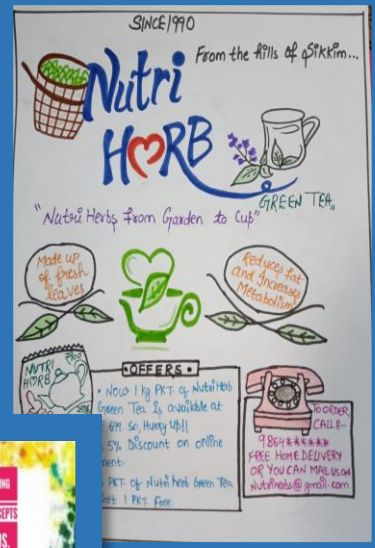 SINCE 1990
From the hills of Sikkim...
Nutri
HERB
GREEN TEA
"Nutri Herbs From Garden to Cup"
Made up
of fresh
leaves
Reduces fat
and Increases
Metabolism
NUTRI
HERB
OFFERS
• Now 1 kg PKT. of Nutri Herb
Green Tea is available at
699. So, Hurry Up!!
5% Discount on online
ment.
PKT. of Nutri herb Green Tea
1 PKT. Free.
TO ORDER
CALL:-
9864******
FREE HOME DELIVERY
OR YOU CAN MAIL US ON
Nutriherbs@gmail.com
ING
CEPTS
NS.